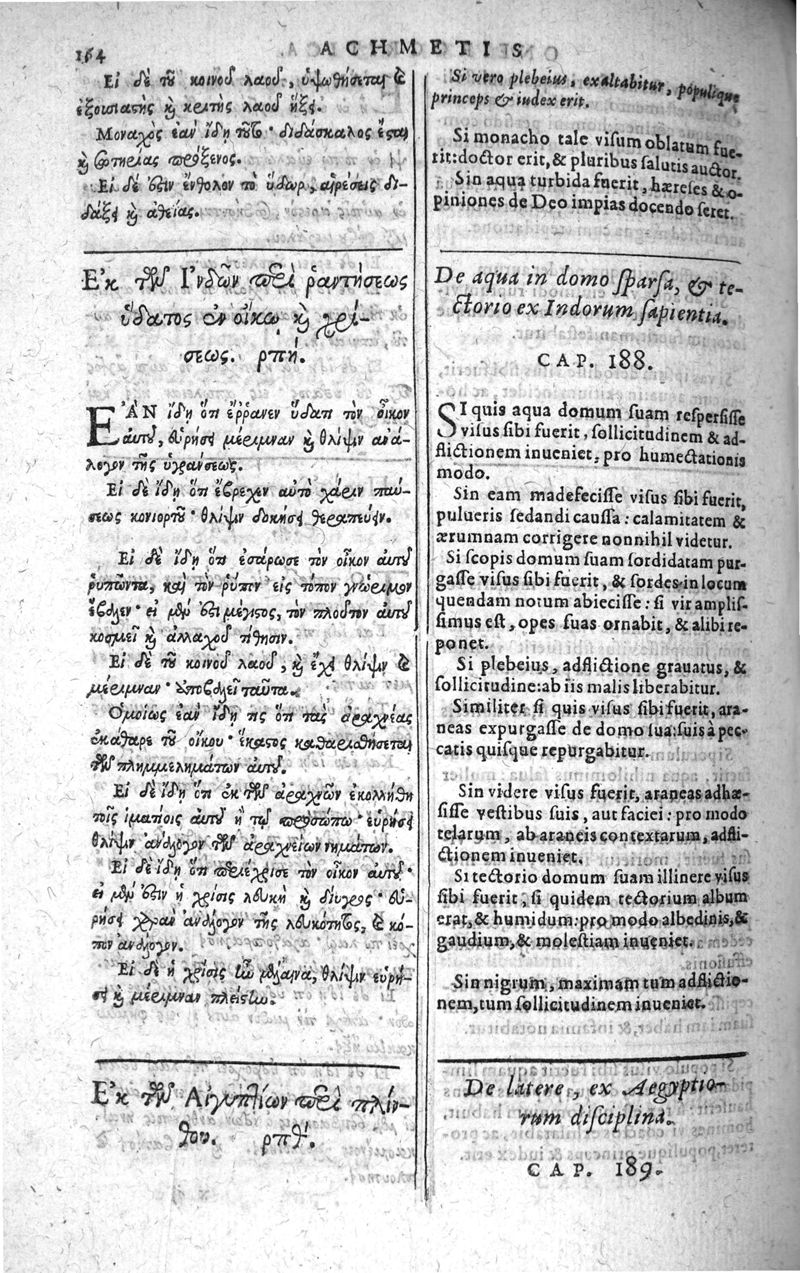 164
ACHMETIS
Εἰ δὲ τοῦ κοινοῦ λαοῦ, ὑψωθήσεται καὶ
ἐξουσιαστὴς καὶ κριτὴς λαοῦ ἥξει.
Μοναχὸς ἐὰν ἴδῃ τοῦτο· διδάσκαλος ἔσται
καὶ σωτηρίας πρόξενος.
Εἰ δέ ἐστιν ἔνθολον τὸ ὕδωρ, αἱρέσεις δι-
δάξει καὶ ἀθεΐας.
Ἐκ τῶν Ἰνδῶν περὶ ῥαντήσεως
ὕδατος ἐν οἴκῳ καὶ χρί-
σεως. ρπή.
ΕΑΝ ἴδῃ ὅτι ἔῤῥανεν ὕδατι τὸν οἶκον
αὐτοῦ, εὑρήσει μέριμναν καὶ θλῖψιν ἀνά-
λογον τῆς ὑγράνσεως.
Εἰ δὲ ἴδῃ ὅτι ἔβρεχεν αὐτὸ χάριν παύ-
σεως κονιορτοῦ· θλῖψιν δοκήσει θεραπεύειν.
Εἰ δὲ ἴδῃ ὅτι ἐσάρωσε τὸν οἶκον αὐτοῦ
ῥυπῶντα, καὶ τὸν ῥύπον εἰς τόπον γνώριμον
ἔβαλεν· εἰ μὲν ἔστι μέγιστος, τὸν πλοῦτον αὐτοῦ
κοσμεῖ καὶ ἀλλαχοῦ τίθησιν.
Εἰ δὲ τοῦ κοινοῦ λαοῦ, καὶ ἔχει θλῖψιν καὶ
μέριμναν· ἀποβαλεῖ ταῦτα.
Ὁμοίως ἐὰν ἴδῃ τις ὅτι τὰς ἀραχνέας
ἐκάθαρε τοῦ οἴκου· ἕκαστος καθαρισθήσεται
τῶν πλημμελημάτων αὐτοῦ.
Εἰ δὲ ἴδῃ ὅτι ἐκ τῶν ἀραχνῶν ἐκολλήθη
τοῖς ἱματίοις αὐτοῦ ἢ τῷ προσώπῳ· εὑρήσει
θλῖψιν ἀνάλογον τῶν ἀραχνείων νημάτων.
Εἰ δὲ ἴδῃ ὅτι περιέχρισε τὸν οἶκον αὐτοῦ·
εἰ μὲν ἔστιν ἡ χρίσις λευκὴ καὶ δίυγρος· εὑ-
ρήσει χαρὰν ἀνάλογον τῆς λευκότητος, καὶ κό-
πον ἀνάλογον.
Εἰ δὲ ἡ χρίσις ἦν μέλαινα, θλῖψιν εὑρή-
σει καὶ μέριμναν πλείστην.
Ἐκ τῶν Αἰγυπτίων περὶ πλίν-
θου. ρπθʹ.
Si vero plebeius, exaltabitur, populique
princeps & iudex erit.
Si monacho tale visum oblatum fue-
rit: doctor erit, & pluribus salutis auctor.
Sin aqua turbida fuerit, hæreses & o-
piniones de Deo impias docendo seret.
De aqua in domo sparsa, & te-
ctorio ex Indorum sapientia.
CAP. 188.
SI quis aqua domum suam respersisse
visus sibi fuerit, sollicitudinem & ad-
flictionem inueniet, pro humectationis
modo.
Sin eam madefecisse visus sibi fuerit,
pulueris sedandi caussa: calamitatem &
ærumnam corrigere nonnihil videtur.
Si scopis domum suam sordidatam pur-
gasse visus sibi fuerit, & sordes in locum
quendam notum abiecisse: si vir amplis-
simus est, opes suas ornabit, & alibi re-
ponet.
Si plebeius, adflictione grauatus, &
sollicitudine: ab iis malis liberabitur.
Similiter si quis visus sibi fuerit, ara-
neas expurgasse de domo sua: suis à pec-
catis quisque repurgabitur.
Sin videre visus fuerit, araneas adhæ-
sisse vestibus suis, aut faciei: pro modo
telarum, ab araneis contextarum, adfli-
ctionem inueniet.
Si tectorio domum suam illinere visus
sibi fuerit, si quidem tectorium album
erat, & humidum: pro modo albedinis, &
gaudium, & molestiam inueniet.
Sin nigrum, maximam tum adflictio-
nem, tum sollicitudinem inueniet.
De latere, ex Aegyptio-
rum disciplina.
CAP. 189.